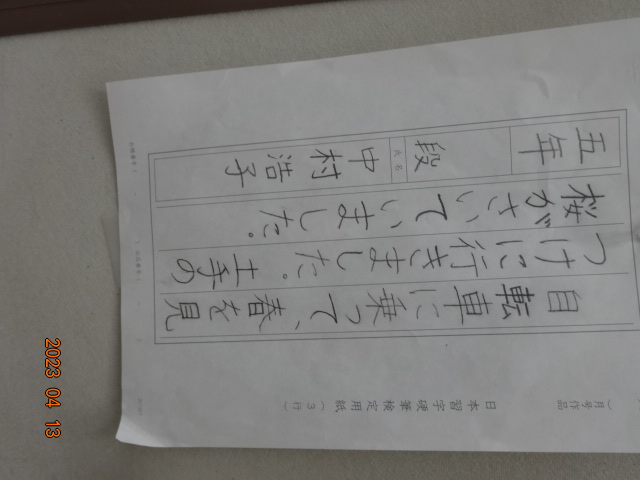 日本習字硬筆検定用紙(3行)
月号作品
自転車に乗って、春を見
つけに行きました。土手の
桜がさいていました。
五年
段
氏名
中村浩子
2023 04 13